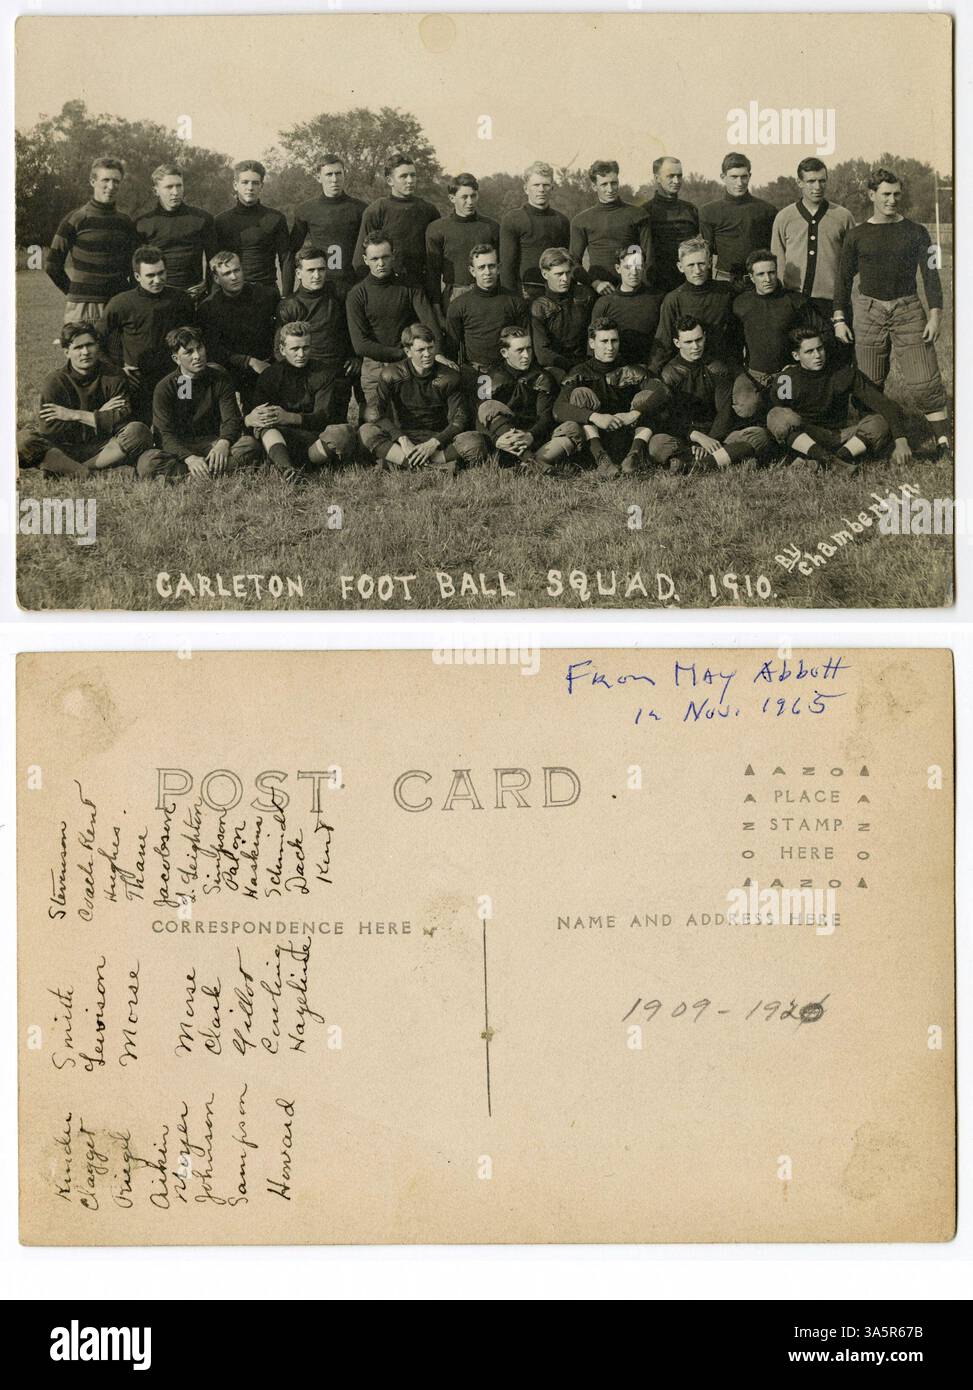 By
Chamberlin.
CARLETON FOOT BALL SQUAD, 1910.
From May Abbott
12 Nov. 1965
POST CARD
AZO
PLACE
STAMP
HERE
AZO
CORRESPONDENCE HERE
NAME AND ADDRESS HERE
1909-192
Stevenson
Coach Kent
Hughes.
Thane
Jacobson
L. Leighton
Simpson
Haskins
Schmidt
Dack
Kent
Smith
Levison
Morse
Morse
Clark
Gillot
Cowling
Kinder
Clagget
Priegel
Aikin
Moyer
Johnson
Sampson
Howard
alamy
Image ID: 3A5R67B
www.alamy.com